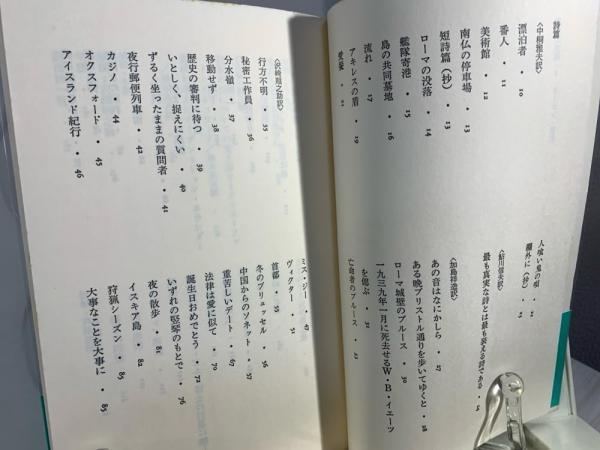 詩篇
〈中桐雅夫訳〉
漂泊者・10
番人・11
美術館・12
南仏の停車場・13
短詩篇〈抄〉・13
ローマの没落・14
艦隊寄港・15
島の共同墓地・16
流れ・17
アキレスの盾・19
愛憐・21
人喰い鬼の唄・22
欄外に〈抄〉・22
〈鮎川信夫訳〉
最も真実な詩とは最も装える詩である・25
〈加島祥造訳〉
あの音はなにかしら・27
ある晩ブリストル通りを歩いてゆくと・28
ローマ城壁のブルース・30
一九三九年一月に死去せるW・B・イェーツ
を偲ぶ・30
亡命者のブルース・33
〈沢崎順之助訳〉
行方不明・35
秘密工作員・36
分水嶺・37
移動せず・38
歴史の審判に待つ・39
いとしく、捉えにくい・40
ずるく坐ったままの質問者・41
夜行郵便列車・42
カジノ・44
オクスフォード・45
アイスランド紀行・46
ミス・ジー・47
ヴィクター・51
首都・55
冬のブリュッセル・56
中国からのソネット・57
重苦しいデート・67
法律は愛に似て・70
誕生日おめでとう・72
いずれの竪琴のもとで・76
夜の散歩・81
イスキア島・82
狩猟シーズン・85
大事なことを大事に・85